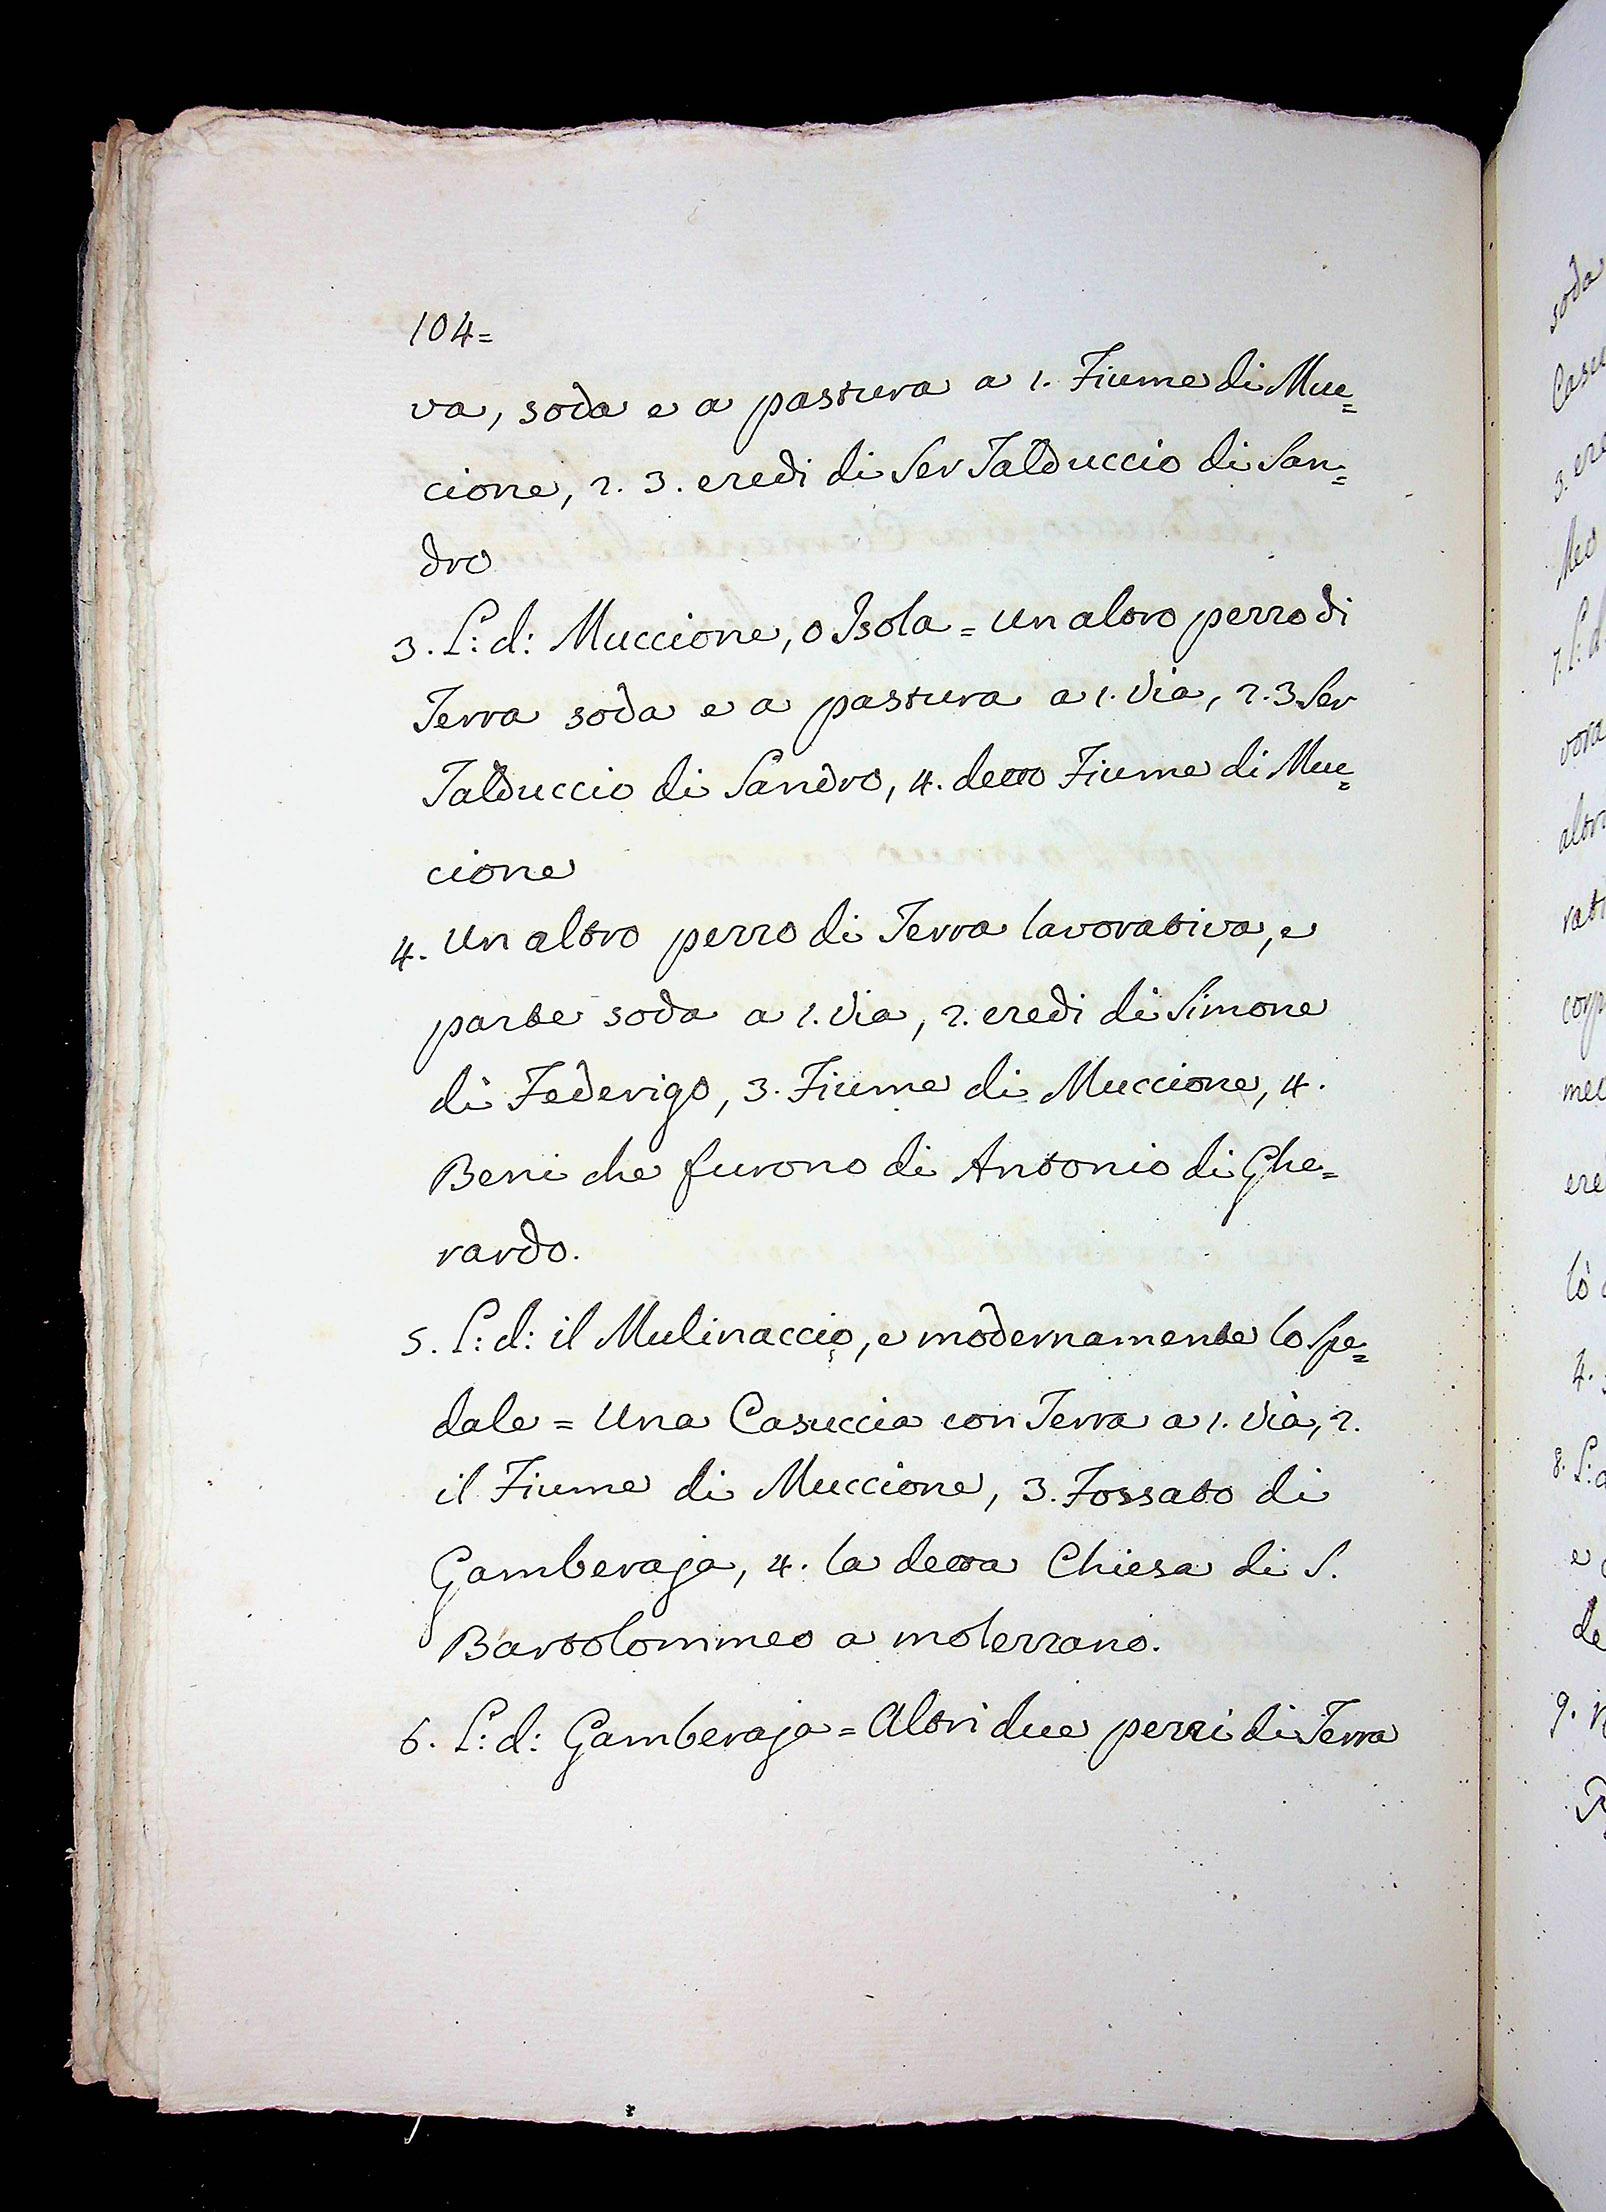 104=
va, soda e a pastura a 1. Fiume di Muc=
cione, 2. 3. eredi di Ser Talduccio di San=
dro
3. L: d: Muccione, o Isola = un altro pezzo di
Terra soda e a pastura a 1. Via, 2. 3 Ser
Talduccio di Sandro, 4. detto Fiume di Muc=
cione
4. Un altro pezzo di Terra lavorativa, e
parte soda a 1. Via, 2. eredi di Simone
di Federigo, 3. Fiume di Muccione, 4.
Beni che furono di Antonio di Ghe=
rardo.
5. L: d: il Mulinaccio, e modernamente lo Spe=
dale = Una Casuccia con Terra a 1. Via, 2.
il Fiume di Muccione, 3. Fossato di
Gamberaja, 4. la detta Chiesa di S.
Bartolommeo a molezzano.
6. L: d: Gamberaja = Altri due pezzi di Terra
soda
3. ere
Meo
7. L: d
vora
altr
rati
ere
4.
8. L: d
e
de
9.